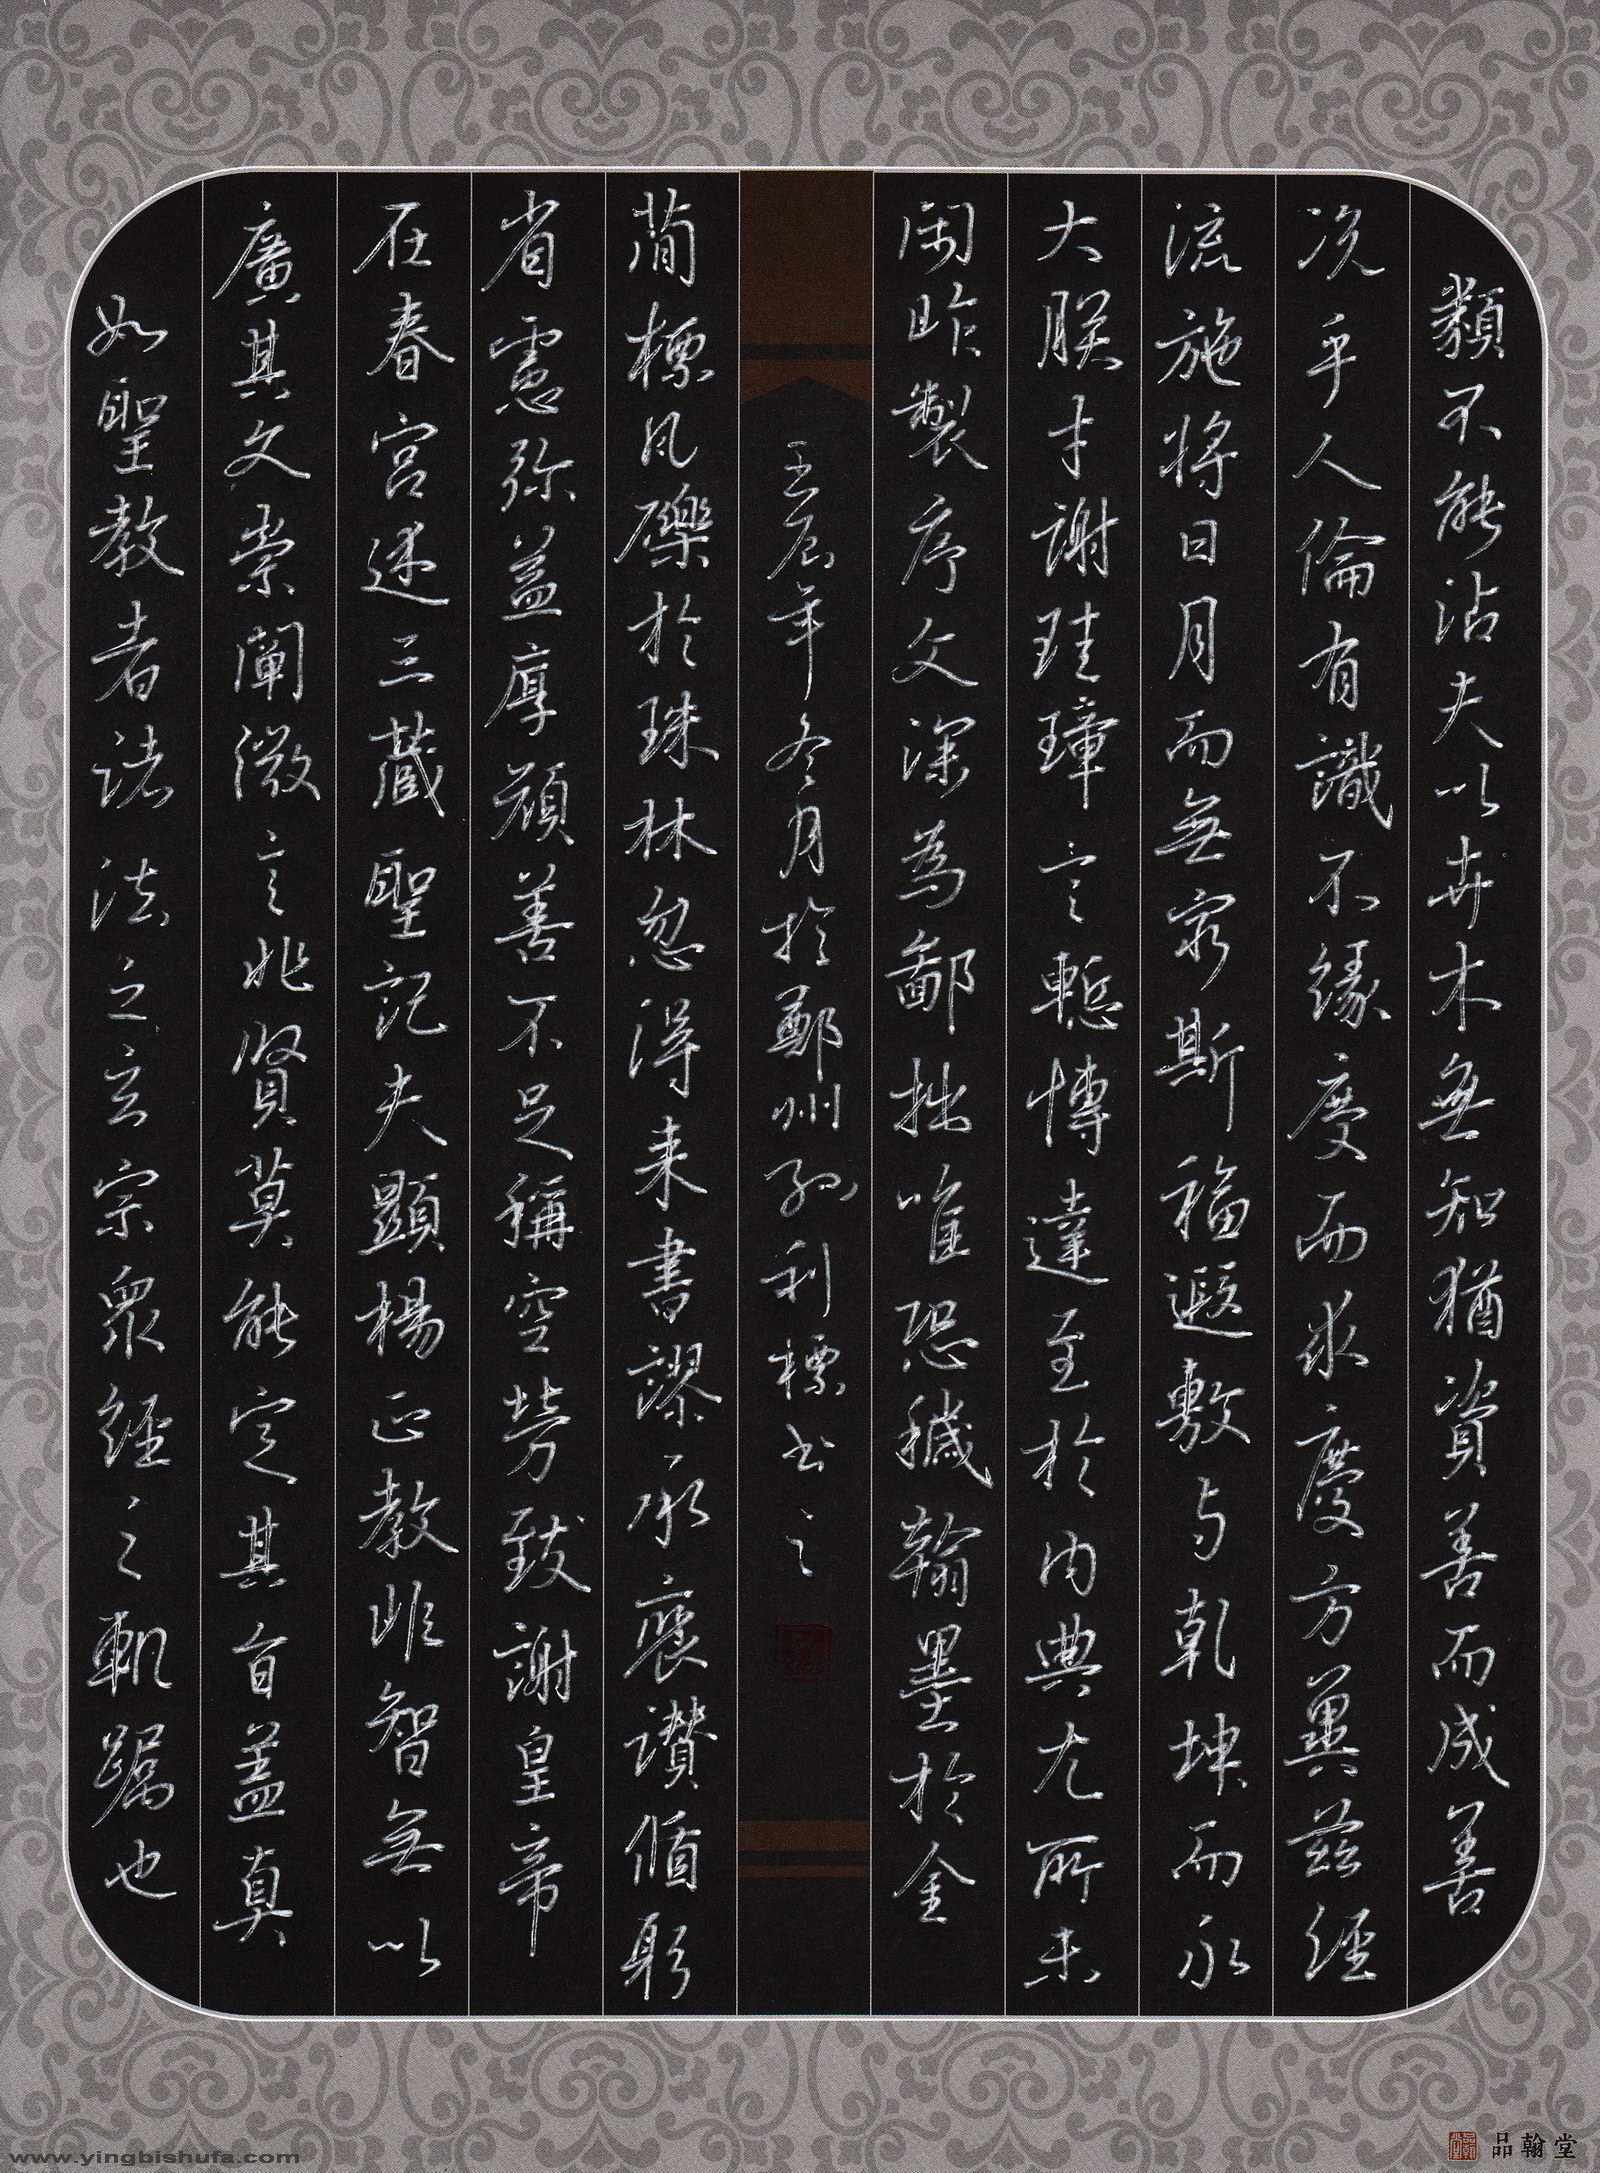 類不能沾夫以卉木無知猶資善而成善
况乎人倫有識不緣慶而求慶方冀茲經
流施将日月而無窮斯福遐敷与乾坤而永
大朕才謝珪璋言慙博達至於内典尤所未
閑昨製序文深為鄙拙唯恐穢翰墨於金
簡標瓦礫於珠林忽得来書謬承褒讃循躬
省慮弥益厚顔善不足稱空勞致謝皇帝
在春宫述三藏聖記夫顯揚正教非智無以
廣其文崇闡微言非賢莫能定其旨盖真
如聖教者諸法之玄宗衆經之軌躅也
壬辰年冬月於鄭州孙利標书之
www.yingbishufa.com
品翰堂